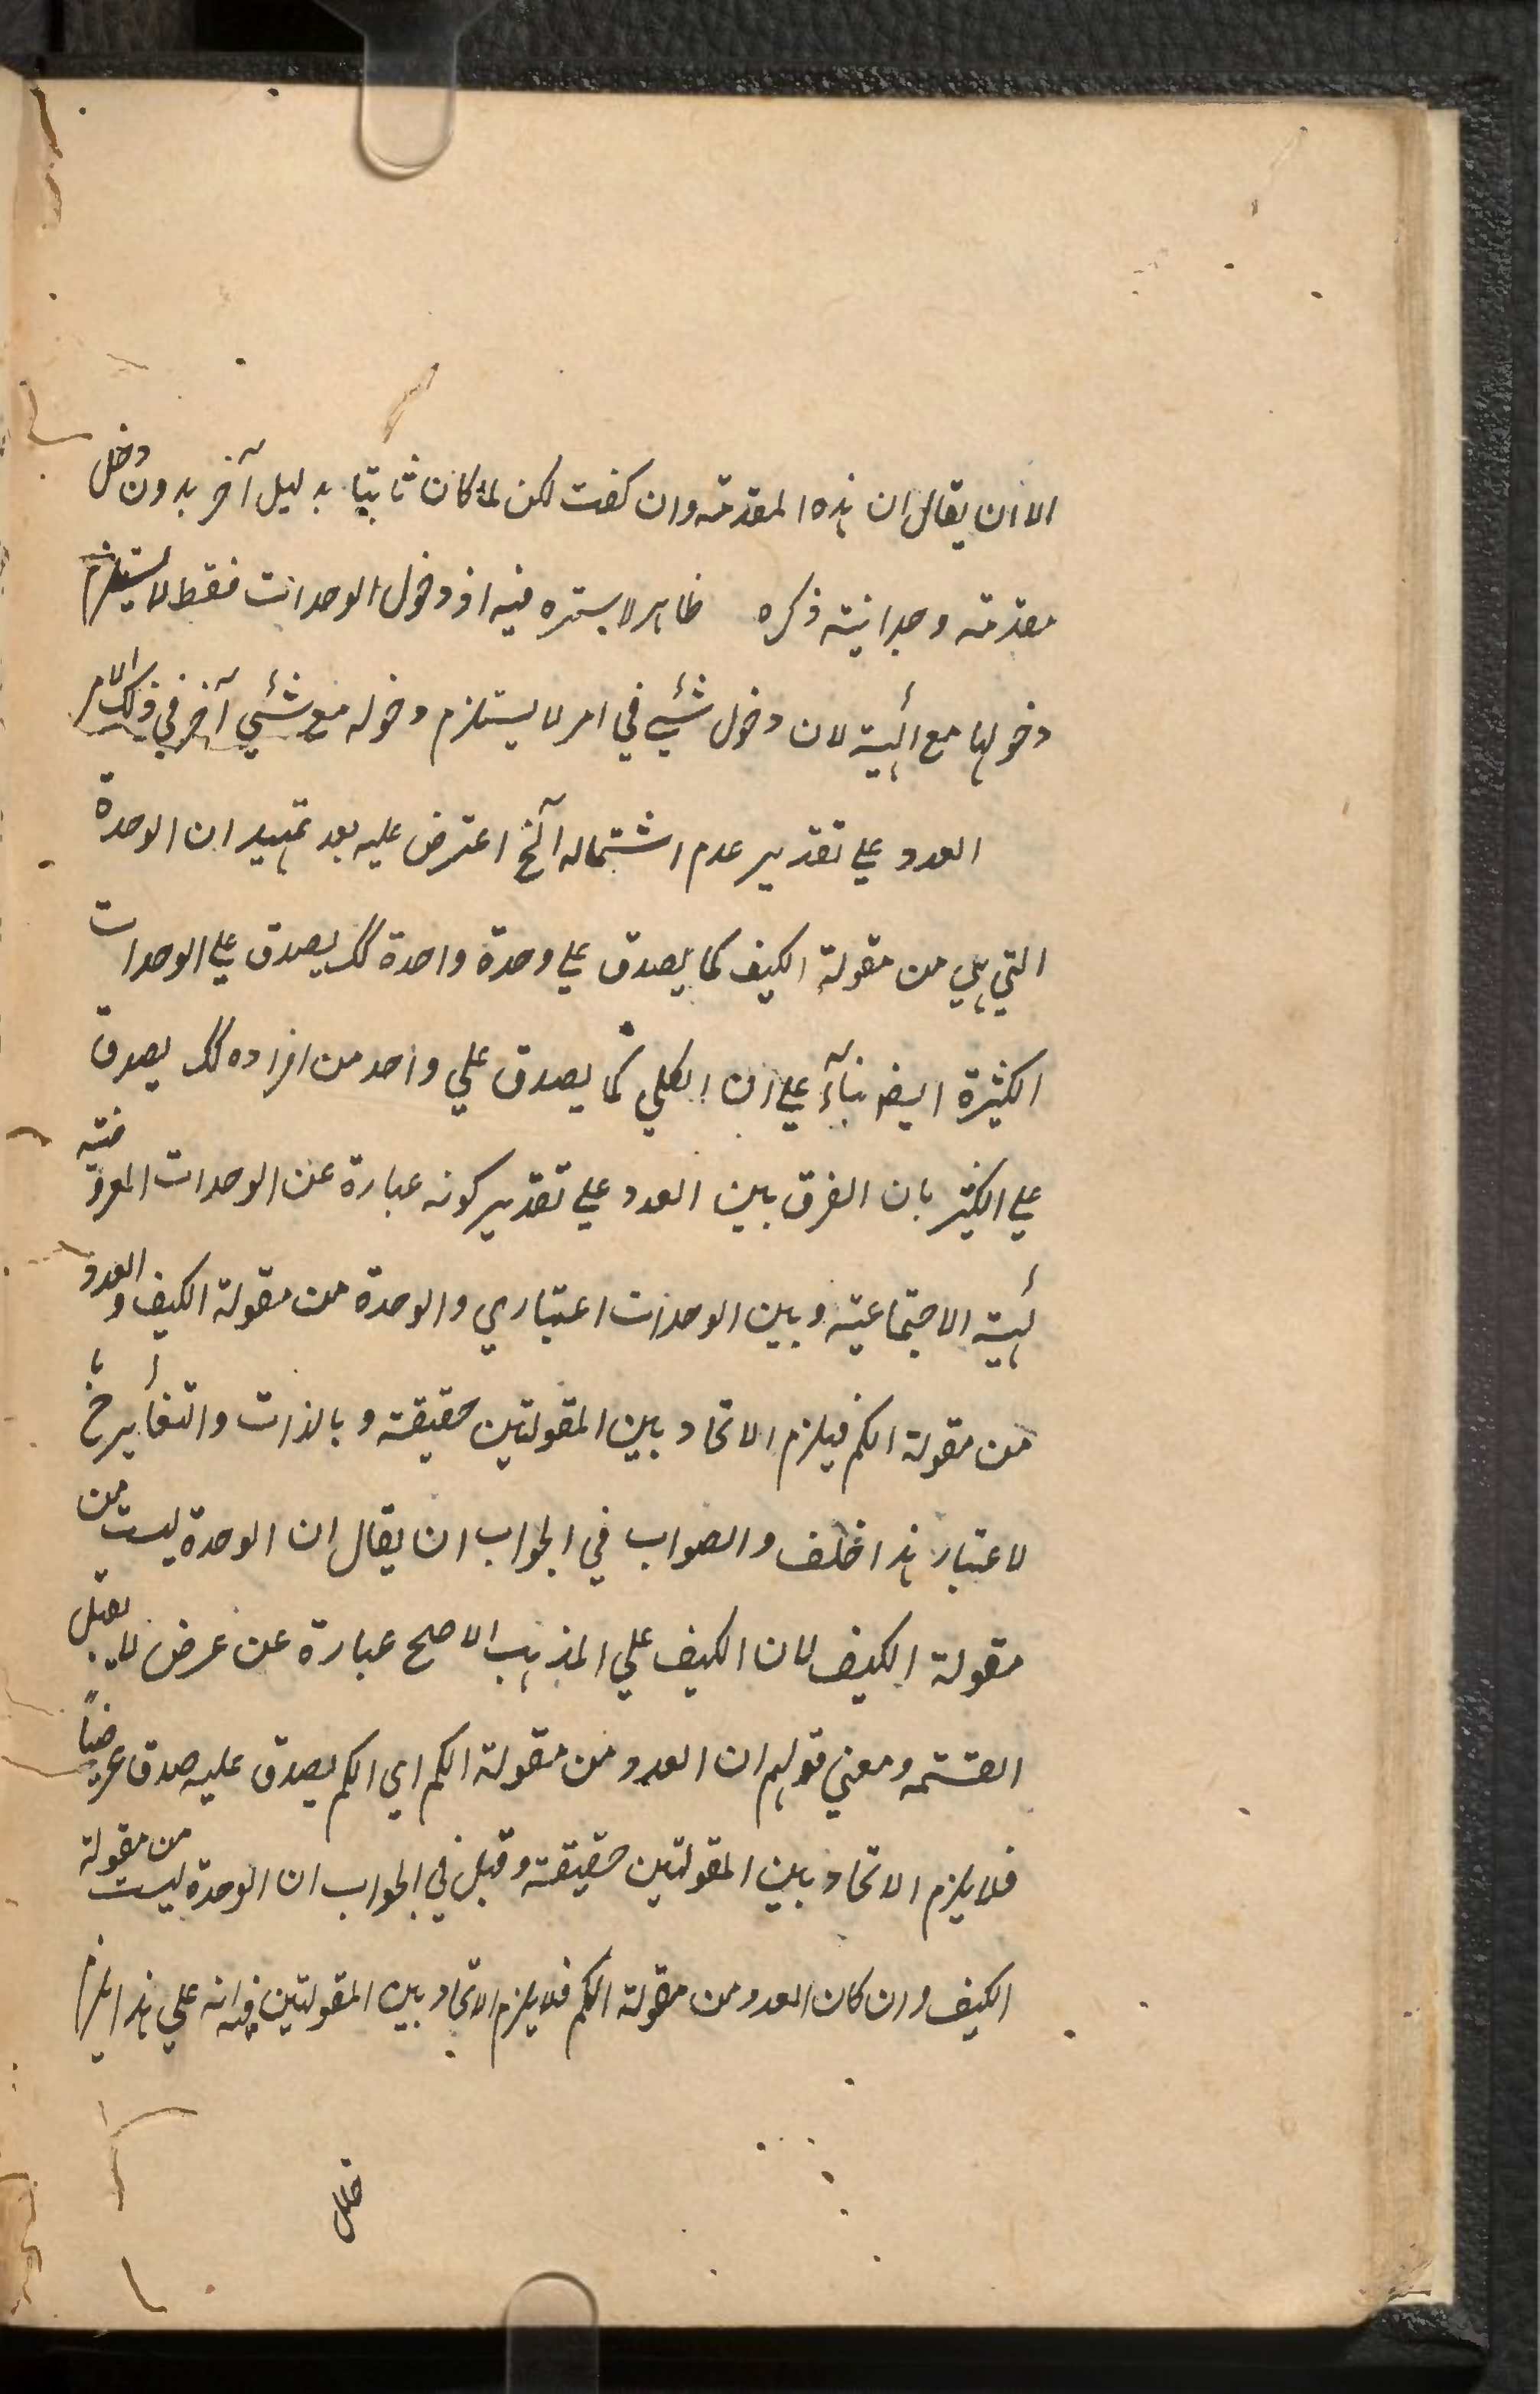 الا ان يقال ان هذه المقدمة وان كفت لكن لما كان ثابتا بدليل آخر بدون دخل
مقدمة وجدانية ذكره ظاهر لا سترة فيه اذ دخول الوحدات فقط لا يستلزم
دخولها مع الهيئة لان دخول شيئ في امر لا يستلزم دخوله مع شيئ آخر في ذلك الامر
العدد علي تقدير عدم اشتماله آلخ اعترض عليه بعد تمهيد ان الوحدة
التي هي من مقولة الكيف كما يصدق علي وحدة واحدة كك يصدق علي الوحدات
الكثيرة ايضا بنآء علي ان الكلي كما يصدق علي واحد من افراده كك يصدق
علي الكثير بان الفرق بين العدد علي تقدير كونه عبارة عن الوحدات المعروضة
لهيئة الاجتماعية وبين الوحدات اعتباري والوحدة من مقولة الكيف والعدد
من مقولة الكم فيلزم الاتحاد بين المقولتين حقيقة وبالذات والتغائر ح با
لاعتبار هذا خلف والصواب في الجواب ان يقال ان الوحدة ليست من
مقولة الكيف لان الكيف علي المذهب الاصح عبارة عن عرض لا يقبل
القسمة ومعني قولهم ان العدد من مقولة الكم اي الكم يصدق عليه صدقا عرضياً
فلا يلزم الاتحاد بين المقولتين حقيقة وقيل في الجواب ان الوحدة ليست من مقولة
الكيف وان كان العدد من مقولة الكم فلا يلزم الاتحاد بين المقولتين فيه انه علي هذا يلزم